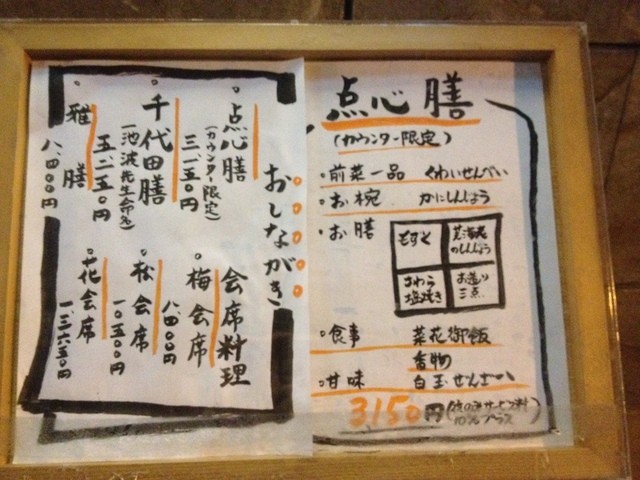 おしながき
点心膳
(カウンター限定)
三、一五〇円
千代田膳
(池波先生命名)
五、二五〇円
雅膳
八、四〇〇円
会席料理
梅会席
八、四〇〇円
松会席
一〇、五〇〇円
花会席
一三、六五〇円
点心膳
(カウンター限定)
・前菜一品 くわいせんべい
・お椀 かにしんじょう
・お膳
もずく
のしんじょう
さわら
塩焼き
お造り
三点
・食事 菜花御飯
香物
・甘味 白玉ぜんざい
3150円(サービス料
10%プラス)